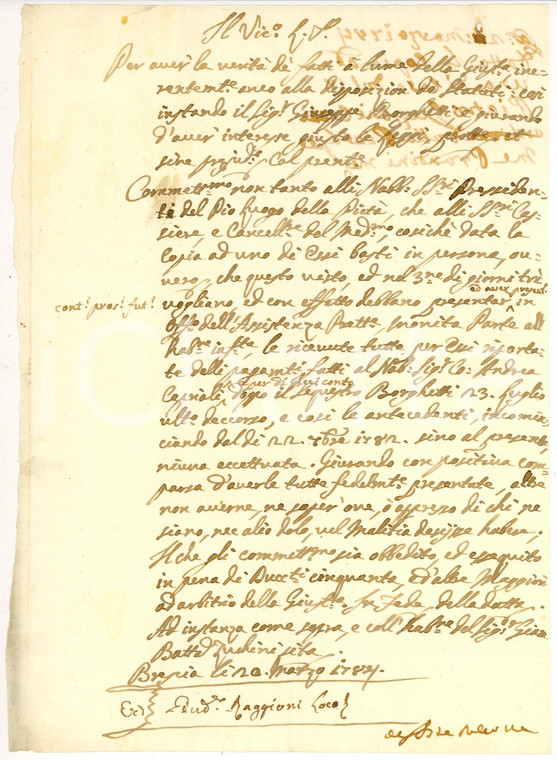 Il Vic.o G.l
Per aver la verità de fatti à lume della Giust.a ine-
rentem.te anco alla disposizion de Statuti; coi
instando il Sig.r Giuseppe Borghetti, e giurando
d'aver interesse giusta le leggi,
sine prejud.o Col presente
Commett.mo non tanto alli Nobb. SS.ri Presiden-
ti del Pio Luogo della Pietà, che alli SS.ri Cas-
siere, e Cancell.re del Med.mo cosichè data la
Copia ad uno di Essi basti in persona, ov-
vero, che questo visto, ed nel 3.ne di giorni trè
ed aver present.
cont.i pros.i fut.i
vogliano, ed con effetto debbano presentar in
Off.o dell'Assistenza Pratt.a, monita Parte all'
Hab.ne infr.a, le ricevute tutte per Essi riporta-
te delli pagam.ti fatti al Nob. Sig.r Co: Andrea
Caprioli, dopo il sequestro Borghetti 23. Luglio
e per di lui conto
ult.o decorso, e così le antecedenti, incomin-
ciando dal dì 22. 1782. sino al presente,
niuna eccettuata. Giurando con positiva com-
parsa d'averle tutte fedelm.te presentate, altre
non averne, ne saper ove, ò appresso di chi ne
siano, nec alio dolo, vel Malitia desijsse habere.
Il che gli commett.mo sia obbedito, ed esseguito
in pena di Ducc.ti cinquanta, ed altre Maggiori
ad arbitrio della Giust.a. In Fede della datta.
Ad instanza come sopra, e coll'hab.ne del Sig.r Gian
Batt.a Zuchini sita.
Brescia li 20. Marzo 1784.
Lud.o Raggioni Loco